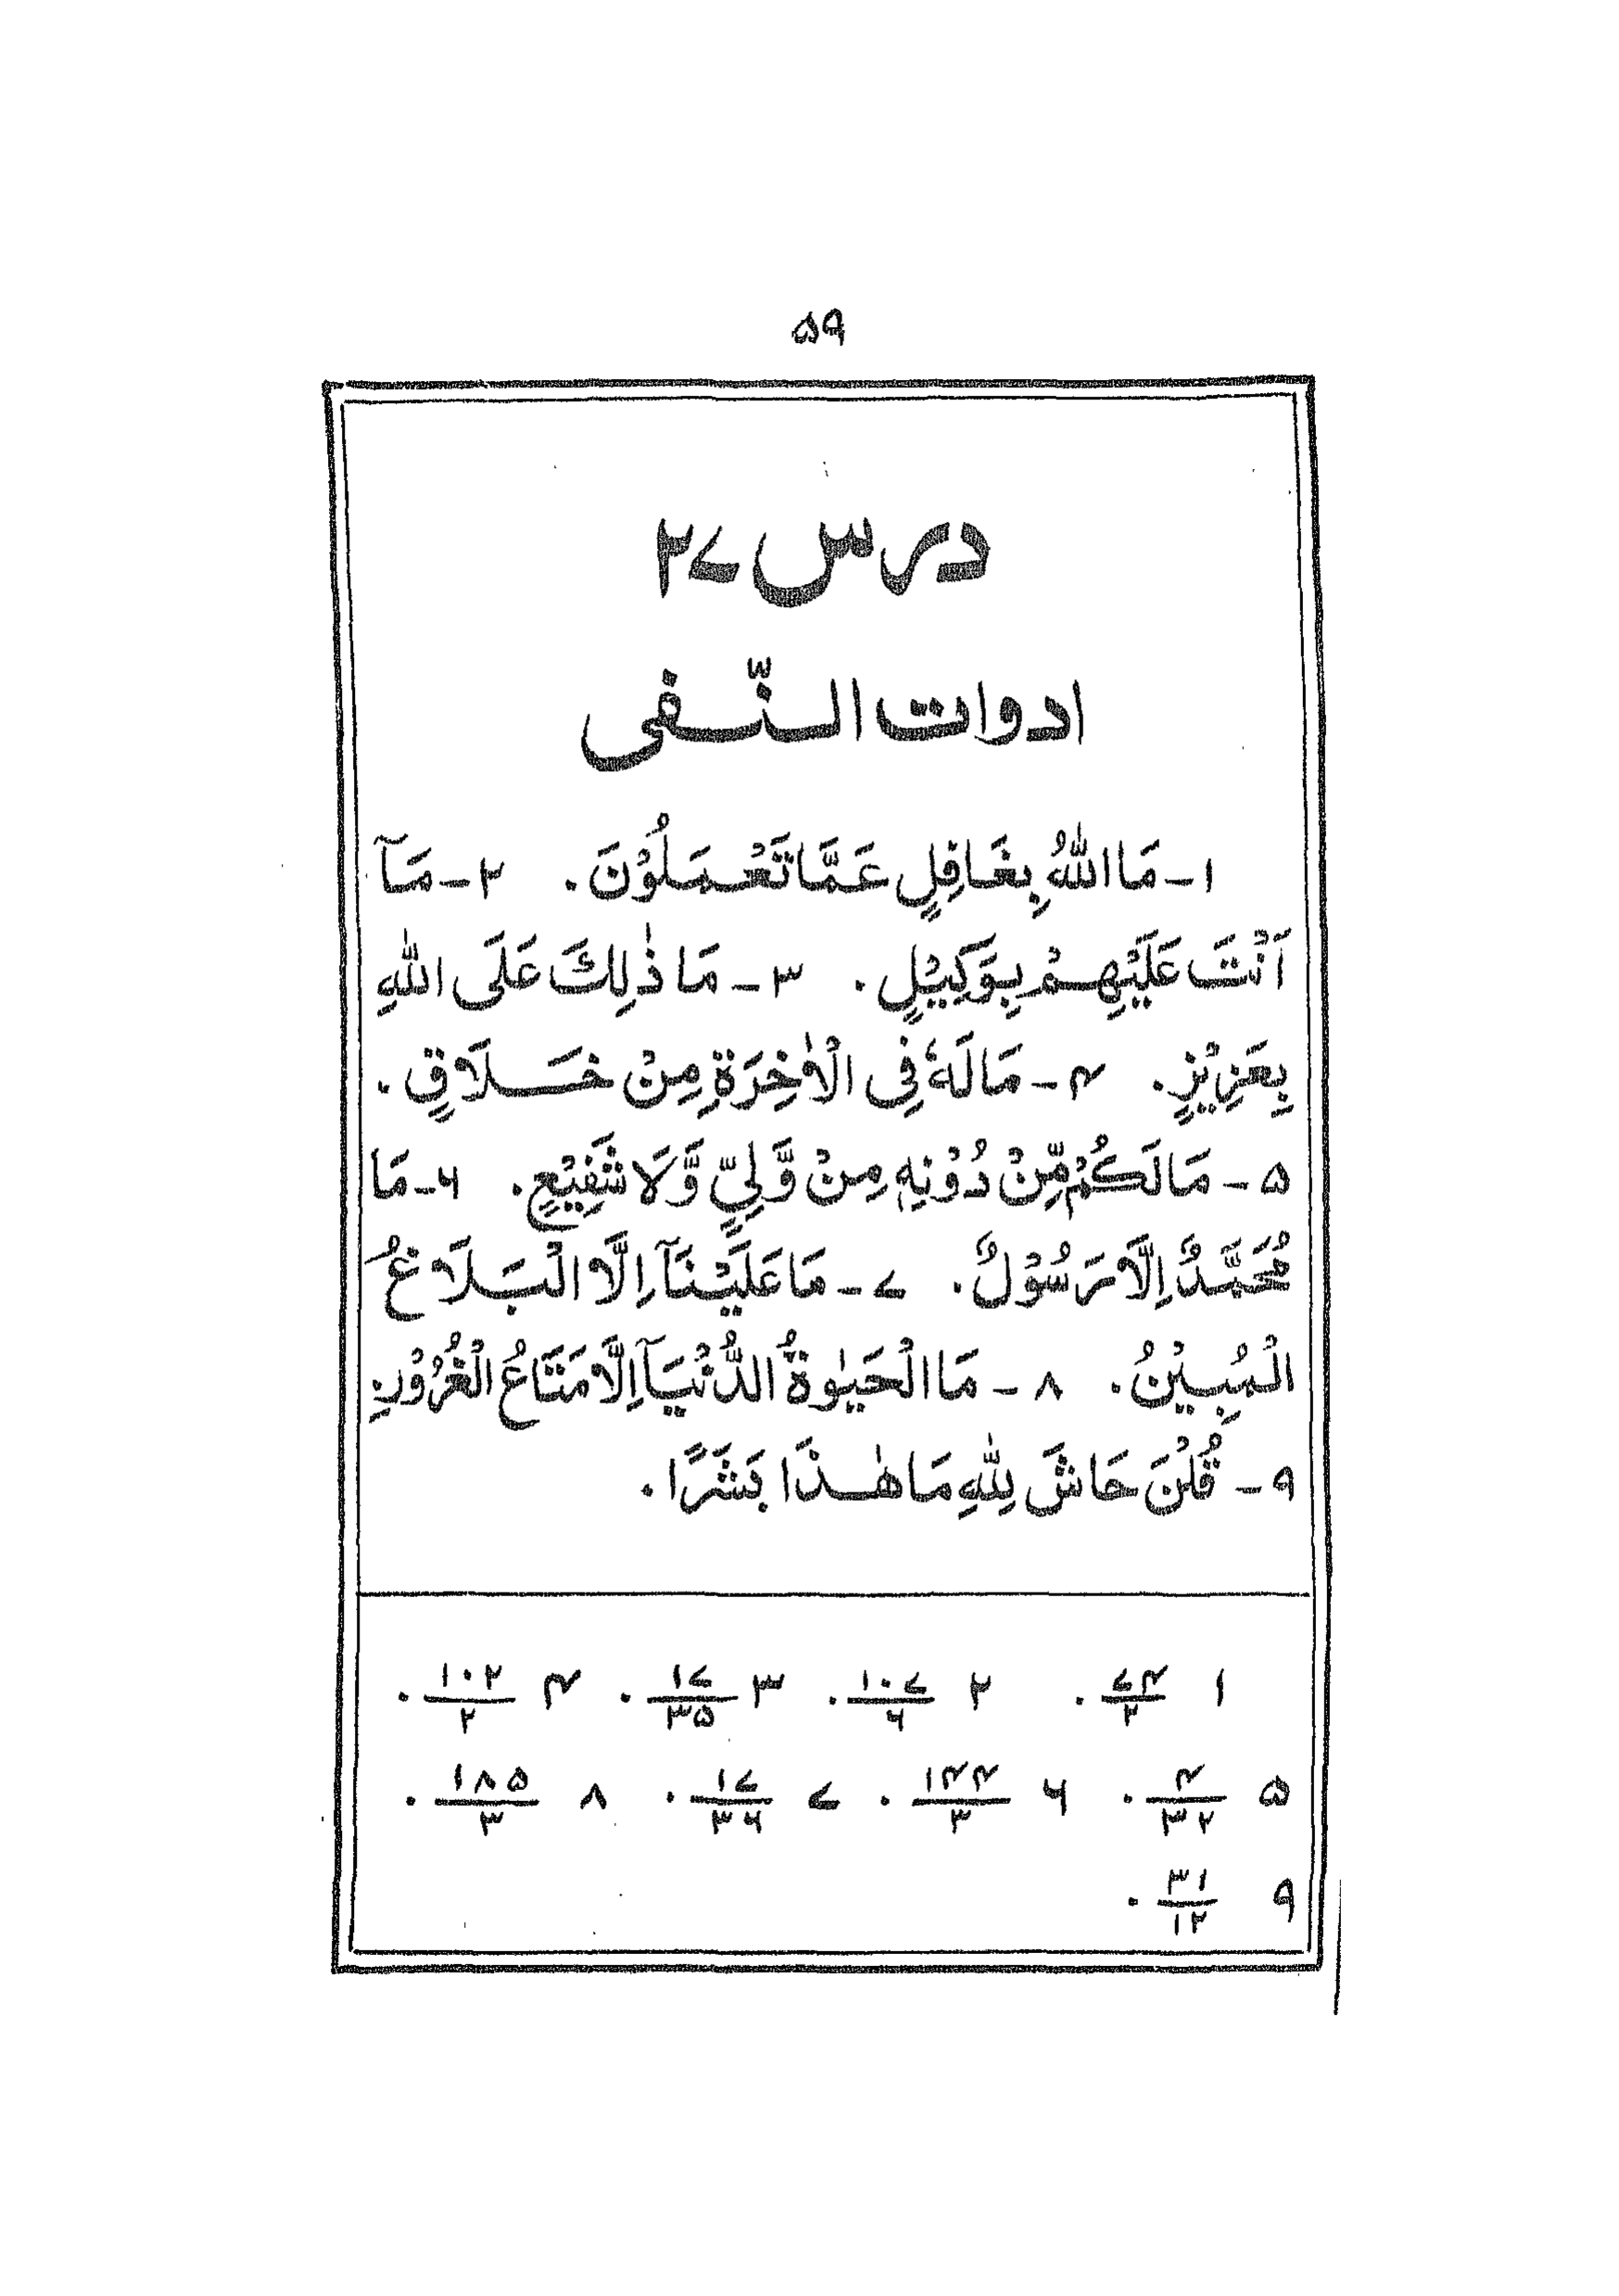 ۵۹
درس ۲۷
ادوات النّفی
۱- مَا اللّٰهُ بِغَافِلٍ عَمَّا تَعْمَلُوْنَ. ۲- مَآ
اَنْتَ عَلَيْهِمْ بِوَكِيْلٍ. ۳- مَا ذٰلِكَ عَلَى اللّٰهِ
بِعَزِيْزٍ. ۴- مَا لَهٗ فِى الْاٰخِرَةِ مِنْ خَلَاقٍ.
۵- مَا لَكُمْ مِّنْ دُوْنِهٖ مِنْ وَّلِيٍّ وَّلَا شَفِيْعٍ. ۶- مَا
مُحَمَّدٌ اِلَّا رَسُوْلٌ. ۷- مَا عَلَيْنَآ اِلَّا الْبَلَاغُ
الْمُبِيْنُ. ۸- مَا الْحَيٰوةُ الدُّنْيَآ اِلَّا مَتَاعُ الْغُرُوْرِ.
۹- قُلْنَ حَاشَ لِلّٰهِ مَا هٰذَا بَشَرًا.
۱ ۷۴/۲. ۲ ۱۰۷/۶. ۳ ۱۷/۳۵. ۴ ۱۰۲/۲.
۵ ۴/۳۲. ۶ ۱۴۴/۳. ۷ ۱۷/۳۶. ۸ ۱۸۵/۳.
۹ ۳۱/۱۲.